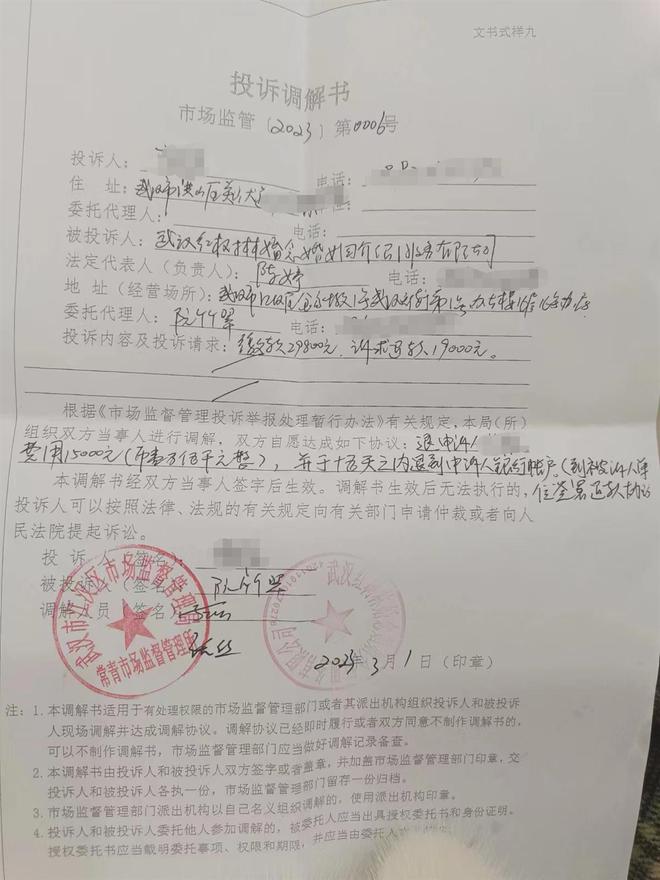 文书式样九
投诉调解书
市场监管〔2023〕第0006号
投诉人：
电话：
住 址：武汉市洪山区
委托代理人：
电话：
被投诉人：武汉红权林婚恋婚姻介绍服务有限公司
法定代表人（负责人）：陈婷
电话：
地 址（经营场所）：武汉市江汉区
委托代理人：阮竹翠
电话：
投诉内容及投诉请求：缴款29800元，诉求退款19000元。
根据《市场监督管理投诉举报处理暂行办法》有关规定，本局（所）
组织双方当事人进行调解，双方自愿达成如下协议：退申诉人
费用15000元（币壹万伍千元整），并于十五天之内退到申诉人银行帐户（到被诉人单
位签署退款协议
本调解书经双方当事人签字后生效。调解书生效后无法执行的，
投诉人可以按照法律、法规的有关规定向有关部门申请仲裁或者向人
民法院提起诉讼。
投 诉 人（签名）：
被投诉人（签名）：阮竹翠
调解人员（签名）：
武汉市江汉区市场监督管理局
常青市场监督管理所
2023年3月1日（印章）
注：1. 本调解书适用于有处理权限的市场监督管理部门或者其派出机构组织投诉人和被投诉
人现场调解并达成调解协议。调解协议已经即时履行或者双方同意不制作调解书的，
可以不制作调解书，市场监督管理部门应当做好调解记录备查。
2. 本调解书由投诉人和被投诉人双方签字或者盖章，并加盖市场监督管理部门印章，交
投诉人和被投诉人各执一份，市场监督管理部门留存一份归档。
3. 市场监督管理部门派出机构以自己名义组织调解的，使用派出机构印章。
4. 投诉人和被投诉人委托他人参加调解的，被委托人应当出具授权委托书和身份证明。
授权委托书应当载明委托事项、权限和期限，并应当由委托人